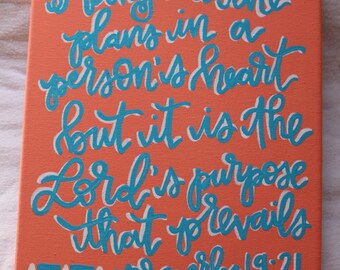 plans in a
person's heart
but it is the
Lord's purpose
that prevails
19:21